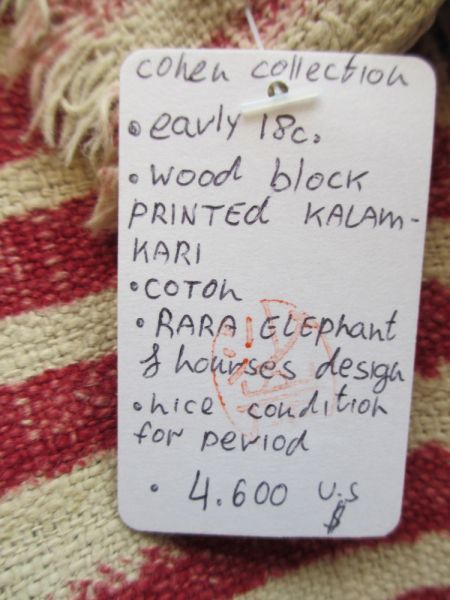 cohen collection
• early 18c.
• wood block
PRINTED KALAM-
KARI
• COTON
• RARA ELEphant
& hourses design
• nice condition
for period
• 4.600 U.S
$